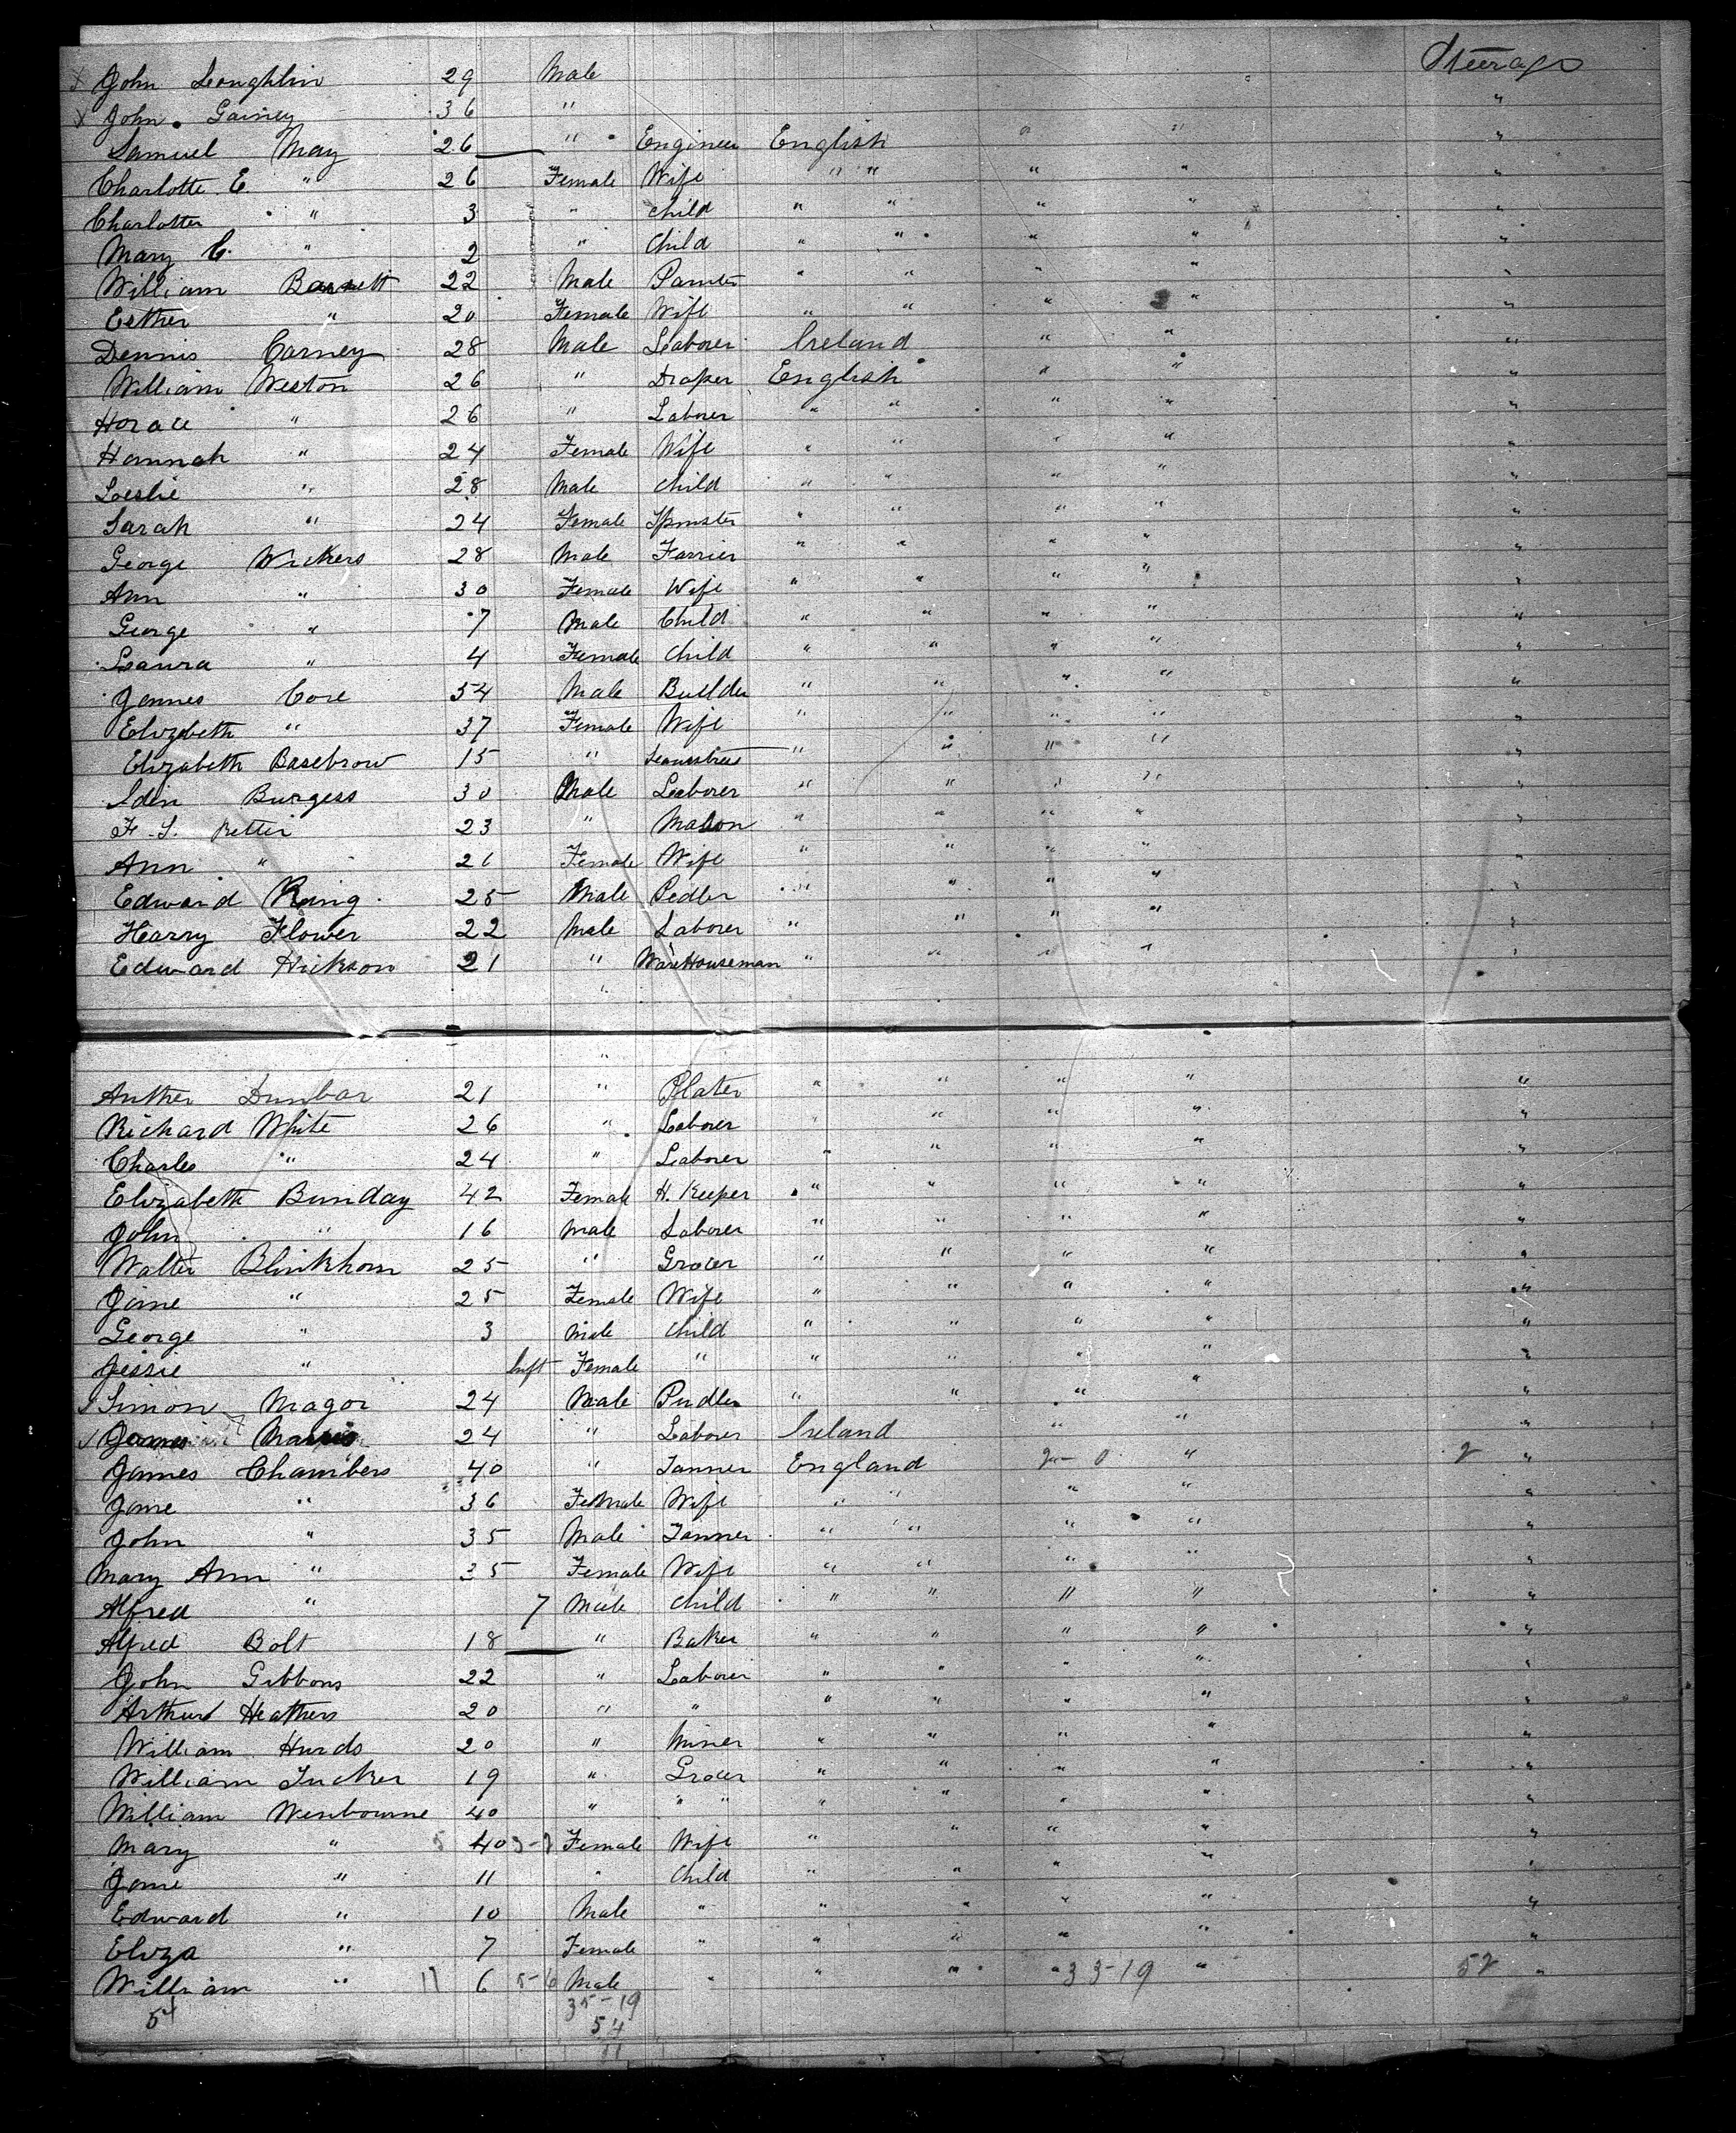 x John Loughlin 29 Male Steerage
x John Gainey 36 " "
Samuel May 26 " Engineer English " " "
Charlotte E. " 26 Female Wife " " " " "
Charlotter " 3 " child " " " " "
Mary C. " 2 " Child " " " " "
William Barnett 22 Male Painter " " " " "
Esther " 20 Female Wife " " " " "
Dennis Carney 28 Male Laborer Ireland " " "
William Weston 26 " Draper English " " "
Horace " 26 " Laborer " " " " "
Hannah " 24 Female Wife " " " " "
Leslie " 28 Male child " " " " "
Sarah " 24 Female Spinster " " " " "
George Wickers 28 Male Farrier " " " " "
Ann " 30 Female Wife " " " " "
George " 7 Male Child " " " " "
Laura " 4 Female Child " " " " "
James Core 54 Male Builder " " " " "
Elizabeth " 37 Female Wife " " " " "
Elizabeth Basebrow 15 " Seamstress " " " " "
Eden Burgess 30 Male Laborer " " " " "
F. S. Pettir 23 " Mason " " " " "
Ann " 21 Female Wife " " " " "
Edward King 25 Male Pedler " " " " "
Harry Flower 22 Male Laborer " " " " "
Edward Hickson 21 " WareHouseman " " " " "
"
"
Auther Dunbar 21 " Slater " " " " "
Richard White 26 " Laborer " " " "
Charles " 24 " Laborer " " " " "
Elizabeth Bunday 42 Female H. Keeper " " " " "
John " 16 Male Laborer " " " " "
Walter Blinkhorn 25 " Grocer " " " " "
Jane " 25 Female Wife " " " " "
George " 3 Male Child " " " " "
Jessie " Inft Female " " " " " "
Simon Magor 24 Male Pudler " " " " "
James 24 " Laborer Ireland " " "
James Chambers 40 " Tanner England 2-0 " 2 "
Jane " 36 Female Wife " " " " "
John " 35 Male Tanner " " " " "
Mary Ann " 35 Female Wife " " " " "
Alfred " 7 Male Child " " " " "
Alfred Bolt 18 " Baker " " " " "
John Gibbons 22 " Laborer " " " " "
Arthur Heathers 20 " " " " " " "
William Hurds 20 " Miner " " " " "
William Tucker 19 " Grocer " " " " "
William Wenbourne 40 " " " " " " " "
Mary " 5 40 3-2 Female Wife " " " " "
Jane " 11 " Child " " " " "
Edward " 10 Male " " " " " "
Eliza " 7 Female " " " " " "
William " 11 6 5-6 Male " " " " 33-19 " 52 "
54 35-19
54
11